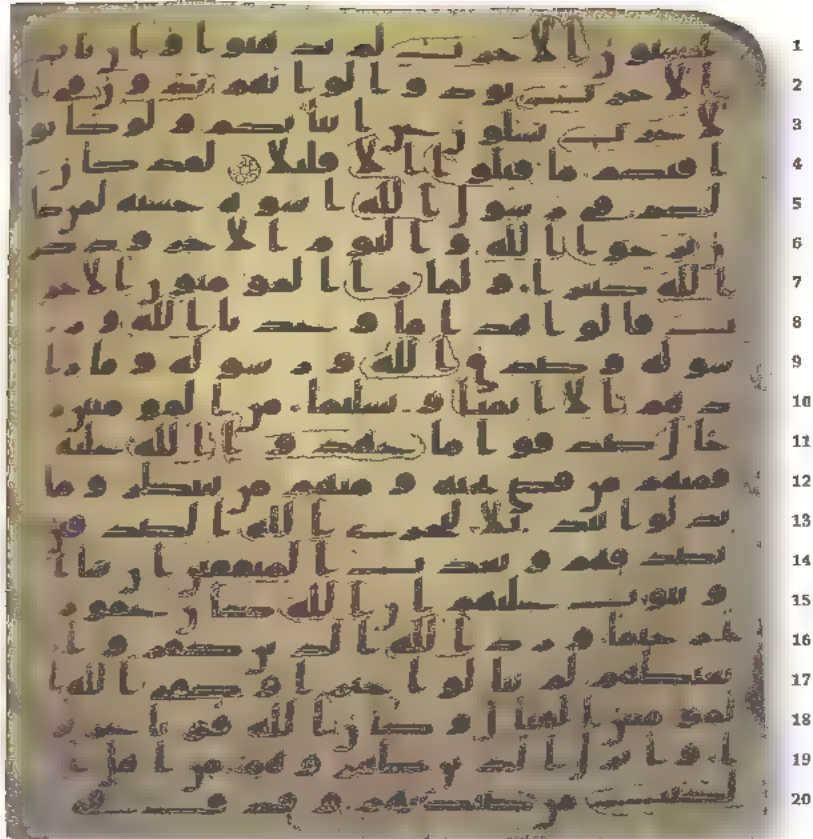 يحسبون الاحزب لم يذهبوا وان يات
الاحزب يودوا لو انهم بدون في ا
لاعرب يسلون عن انبائكم ولو كانو
ا فيكم ما قتلوا الا قليلا لقد كان
لكم في رسول الله اسوة حسنة لمن كا
ن يرجوا الله واليوم الاخر وذكر
الله كثيرا ولما را المومنون الاحز
ب قالوا هذا ما وعدنا الله ور
سوله وصدق الله ورسوله وما زا
دهم الا ايمنا وتسليما من المومنين ر
جال صدقوا ما عهدوا الله عليه
فمنهم من قضى نحبه ومنهم من ينتظر وما
بدلوا تبديلا ليجزي الله الصدقين
بصدقهم ويعذب المنفقين ان شا ا
و يتوب عليهم ان الله كان غفور
ا رحيما ورد الله الذين كفروا
بغيظهم لم ينالوا خيرا وكفى الله ا
لمومنين القتال وكان الله قويا عزيز
ا وانزل الذين ظهروهم من اهل ا
لكتب من صياصيهم وقذف في